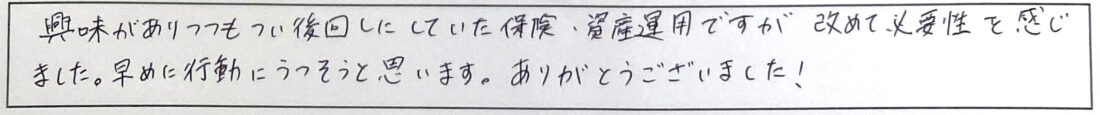 興味がありつつもつい後回しにしていた保険、資産運用ですが 改めて必要性を感じ
ました。早めに行動にうつそうと思います。ありがとうございました！